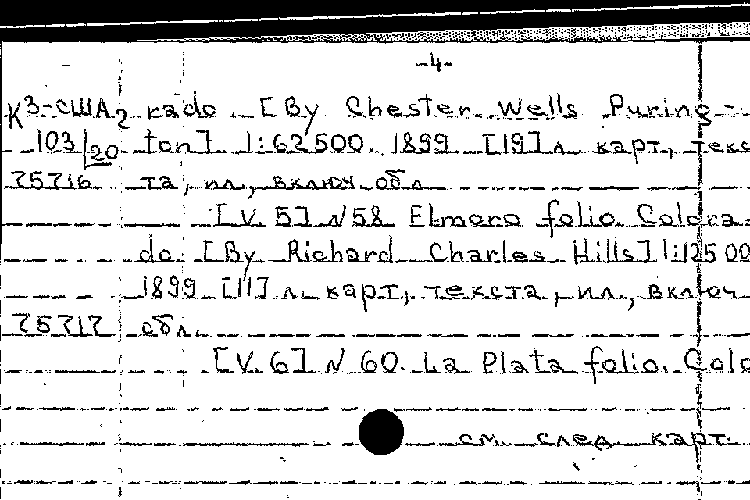 -4-
К3-США2 rado. [By Chester Wells Puring-
103/20 ton] 1:62 500. 1899 [19] л. карт, текс
75716 та, ил., включ. обл
[V. 5] N 58 Elmoro folio. Colora
do. [By Richard Charles Hills] 1:125 00
1899 [11] л. карт, текста, ил., включ
75717 обл.
[V. 6] N 60. La Plata folio. Colo
см. след карт.